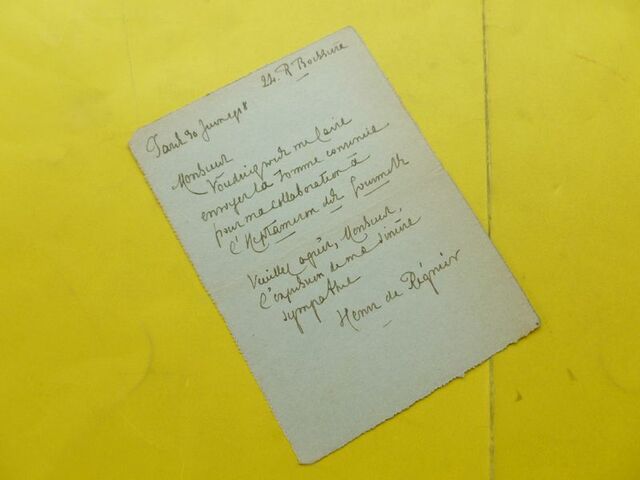 24. R Boissière
Paris 30 Juin 1918
Monsieur
Voudriez vous me faire
envoyer la somme convenue
pour ma collaboration à
l'Heptaméron des Gourmets
Veuillez agréer, Monsieur,
l'expression de ma sincère
sympathie
Henri de Régnier